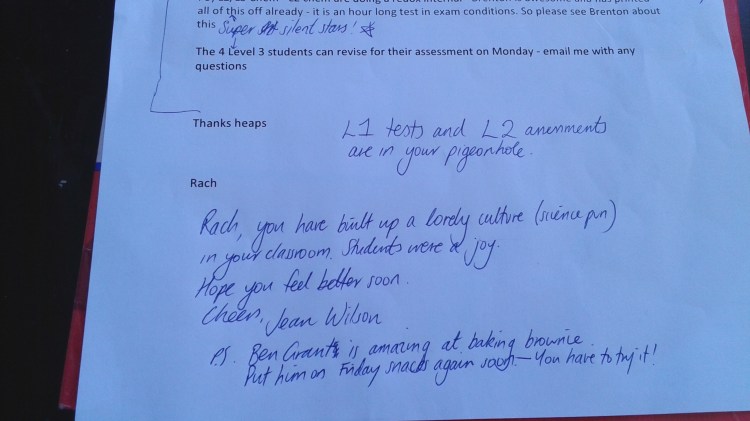 all of this off already - it is an hour long test in exam conditions. So please see Brenton about
this Super silent stars!
The 4 Level 3 students can revise for their assessment on Monday - email me with any
questions
Thanks heaps
L1 tests and L2 assessments
are in your pigeonhole.
Rach
Rach, you have built up a lovely culture (science pun)
in your classroom. Students were a joy.
Hope you feel better soon.
Cheers, Jean Wilson
P.S. Ben Grant is amazing at baking brownie.
Put him on Friday snacks again soon - You have to try it!